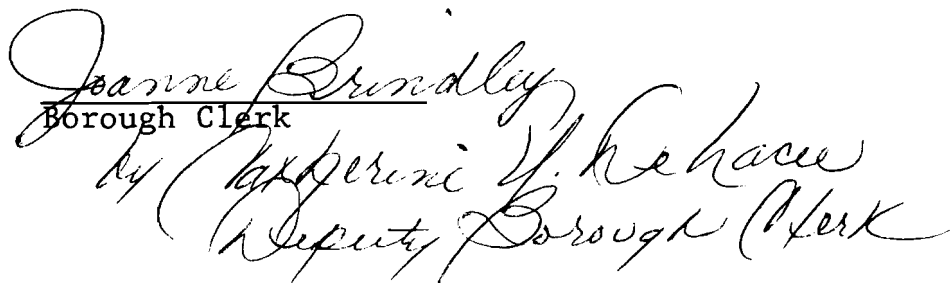 Joanne Brindley
Borough Clerk
by Katherine Y.
Deputy Borough Clerk